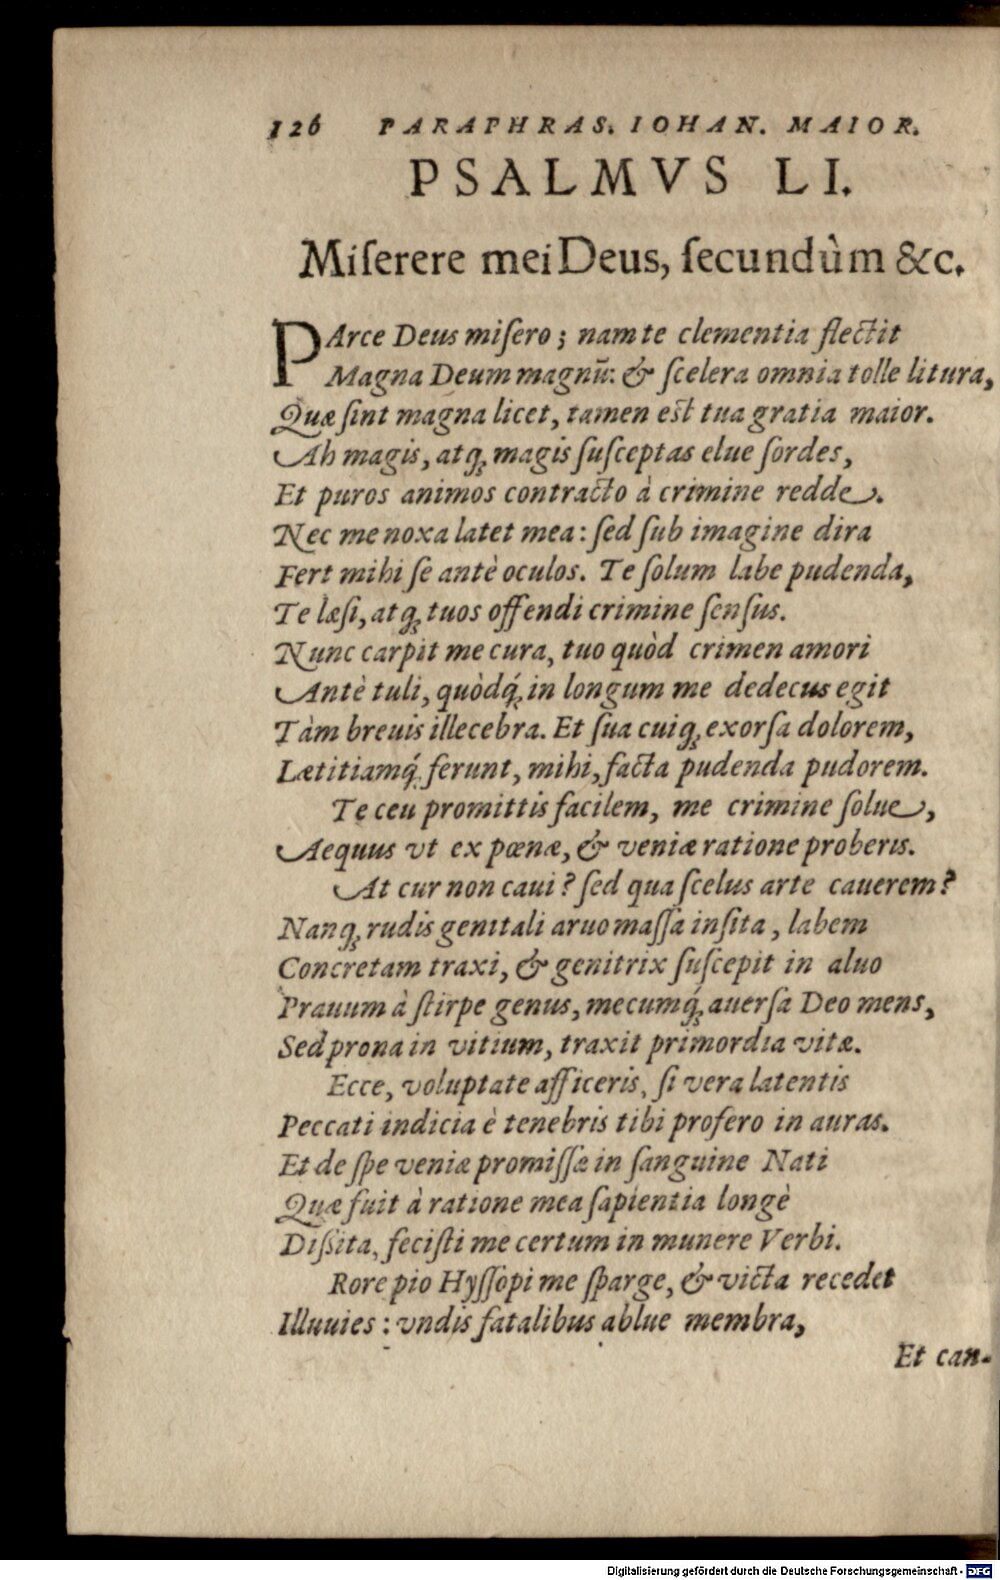 126 PARAPHRAS. IOHAN. MAIOR.
PSALMVS LI.
Miſerere mei Deus, ſecundùm &c.
PArce Deus miſero; nam te clementia flectit
Magna Deum magnū: & ſcelera omnia tolle litura,
Quæ ſint magna licet, tamen est tua gratia maior.
Ah magis, atq́; magis ſuſceptas elue ſordes,
Et puros animos contracto à crimine redde.
Nec me noxa latet mea: ſed ſub imagine dira
Fert mihi ſe antè oculos. Te ſolum labe pudenda,
Te læſi, atq; tuos offendi crimine ſenſus.
Nunc carpit me cura, tuo quòd crimen amori
Antè tuli, quòdq́; in longum me dedecus egit
Tàm breuis illecebra. Et ſua cuiq; exorſa dolorem,
Lætitiamq́; ferunt, mihi, facta pudenda pudorem.
Te ceu promittis facilem, me crimine ſolue,
Aequus vt ex pœnæ, & veniæ ratione proberis.
At cur non caui? ſed qua ſcelus arte cauerem?
Nanq; rudis genitali aruo maſſa inſita, labem
Concretam traxi, & genitrix ſuſcepit in aluo
Prauum à ſtirpe genus, mecumq́; auerſa Deo mens,
Sed prona in vitium, traxit primordia vitæ.
Ecce, voluptate afficeris, ſi vera latentis
Peccati indicia è tenebris tibi profero in auras.
Et de ſpe veniæ promiſſæ in ſanguine Nati
Quæ fuit à ratione mea ſapientia longè
Diſsita, feciſti me certum in munere Verbi.
Rore pio Hyſſopi me ſparge, & victa recedet
Illuuies: vndis fatalibus ablue membra,
Et can-
Digitalisierung gefördert durch die Deutsche Forschungsgemeinschaft - DFG